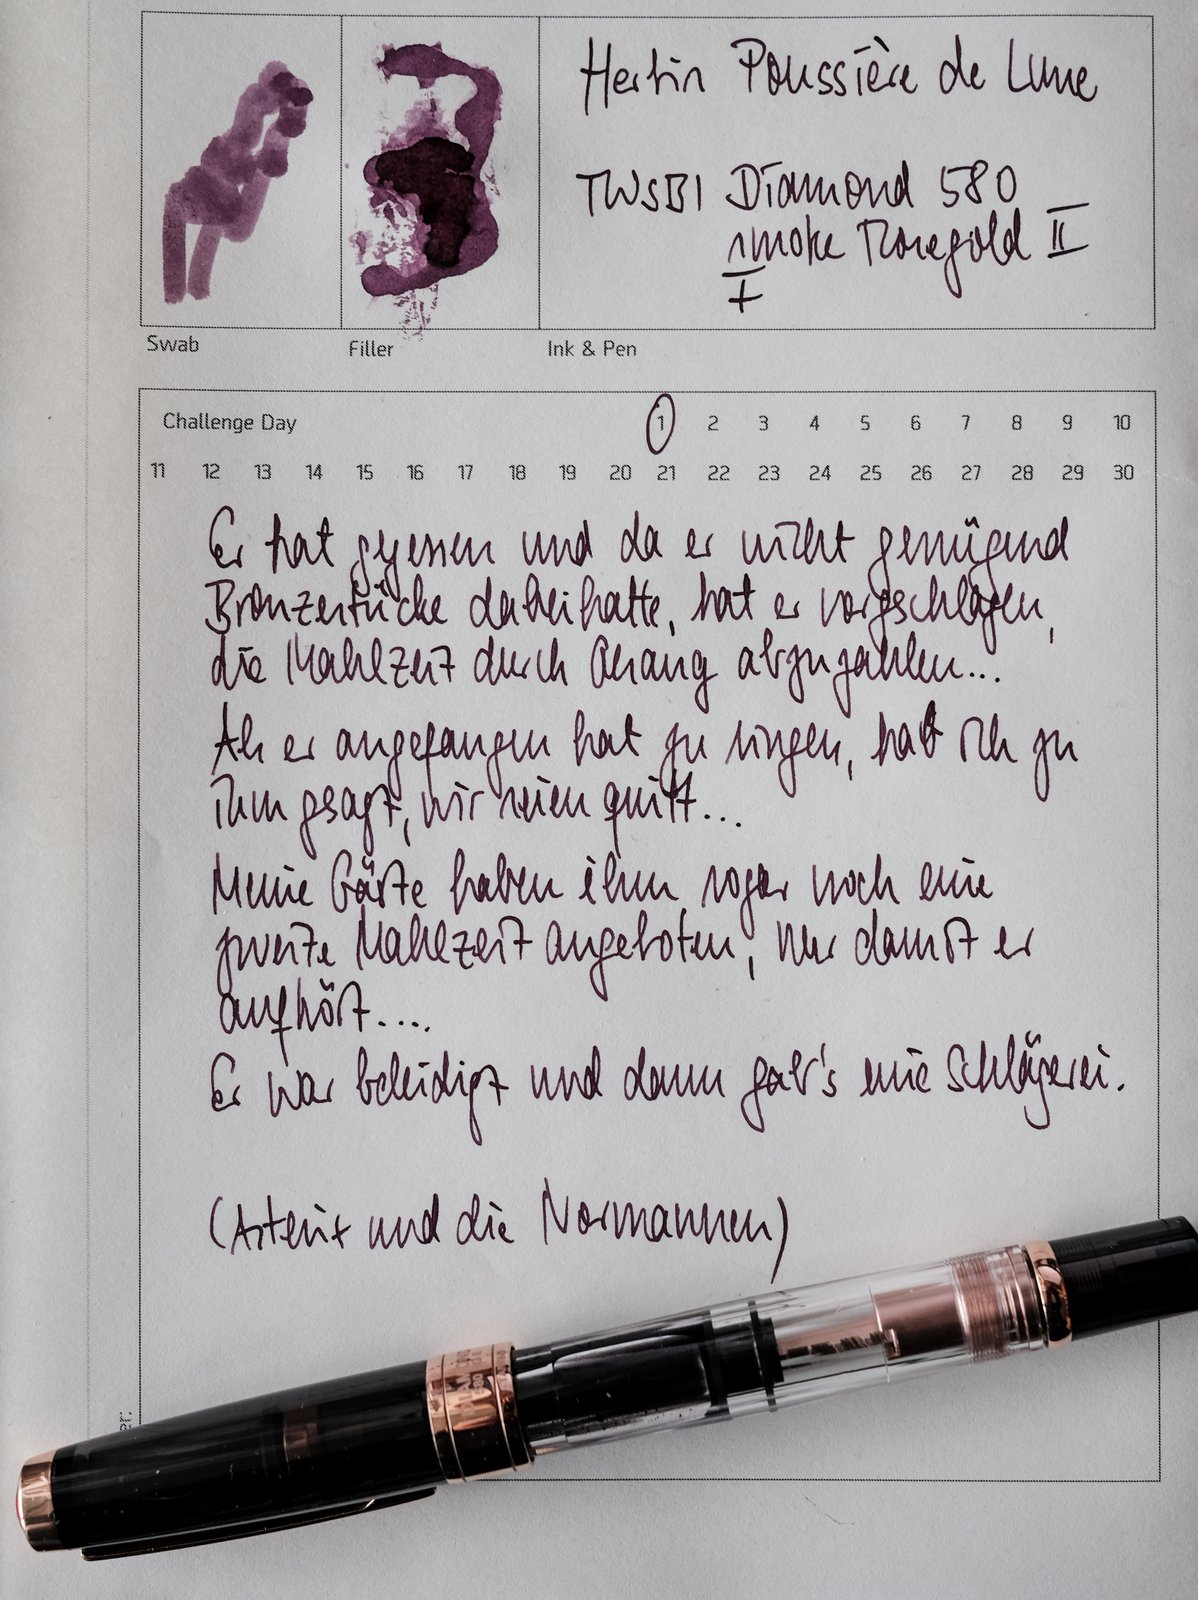 Herbin Poussière de Lune
TWSBI Diamond 580
smoke Rosegold II
F
Swab
Filler
Ink & Pen
Challenge Day 1 2 3 4 5 6 7 8 9 10
11 12 13 14 15 16 17 18 19 20 21 22 23 24 25 26 27 28 29 30
Er hat gegessen und da er nicht genügend
Bronzestücke dabeihatte, hat er vorgeschlagen,
die Mahlzeit durch Gesang abzuzahlen...
Als er angefangen hat zu singen, hab ich zu
ihm gesagt, wir seien quitt...
Meine Gäste haben ihm sogar noch eine
zweite Mahlzeit angeboten, nur damit er
aufhört....
Er war beleidigt und dann gab's eine Schlägerei.
(Asterix und die Normannen)